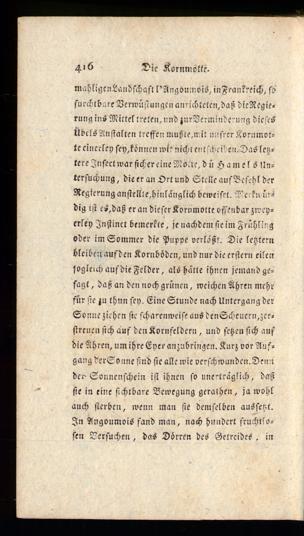 416 Die Kornmotte.
mahligen Landschaft l'Angoumois, in Frankreich, so
furchtbare Verwüstungen anrichteten, daß die Regie-
rung ins Mittel treten, und zur Verminderung dieses
Übels Anstalten treffen mußte, mit unsrer Kornmot-
te einerley sey, können wir nicht entscheiden. Das letz-
tere Insect war sicher eine Motte, dü Hamels Un-
tersuchung, die er an Ort und Stelle auf Befehl der
Regierung anstellte, hinlänglich beweiset. Merkwür-
dig ist es, daß er an dieser Kornmotte offenbar zwey-
erley Instinct bemerkte, je nachdem sie im Frühling
oder im Sommer die Puppe verläßt. Die letztern
bleiben auf den Kornböden, und nur die erstern eilen
sogleich auf die Felder, als hätte ihnen jemand ge-
sagt, daß an den noch grünen, weichen Ähren mehr
für sie zu thun sey. Eine Stunde nach Untergang der
Sonne ziehen sie scharenweise aus den Scheuern, zer-
streuen sich auf den Kornfeldern, und setzen sich auf
die Ähren, um ihre Eyer anzubringen. Kurz vor Auf-
gang der Sonne sind sie alle wie verschwunden. Denn
der Sonnenschein ist ihnen so unerträglich, daß
sie in eine sichtbare Bewegung gerathen, ja wohl
auch sterben, wenn man sie demselben aussetzt.
In Angoumois fand man, nach hundert fruchtlo-
sen Versuchen, das Dörren des Getreides, in